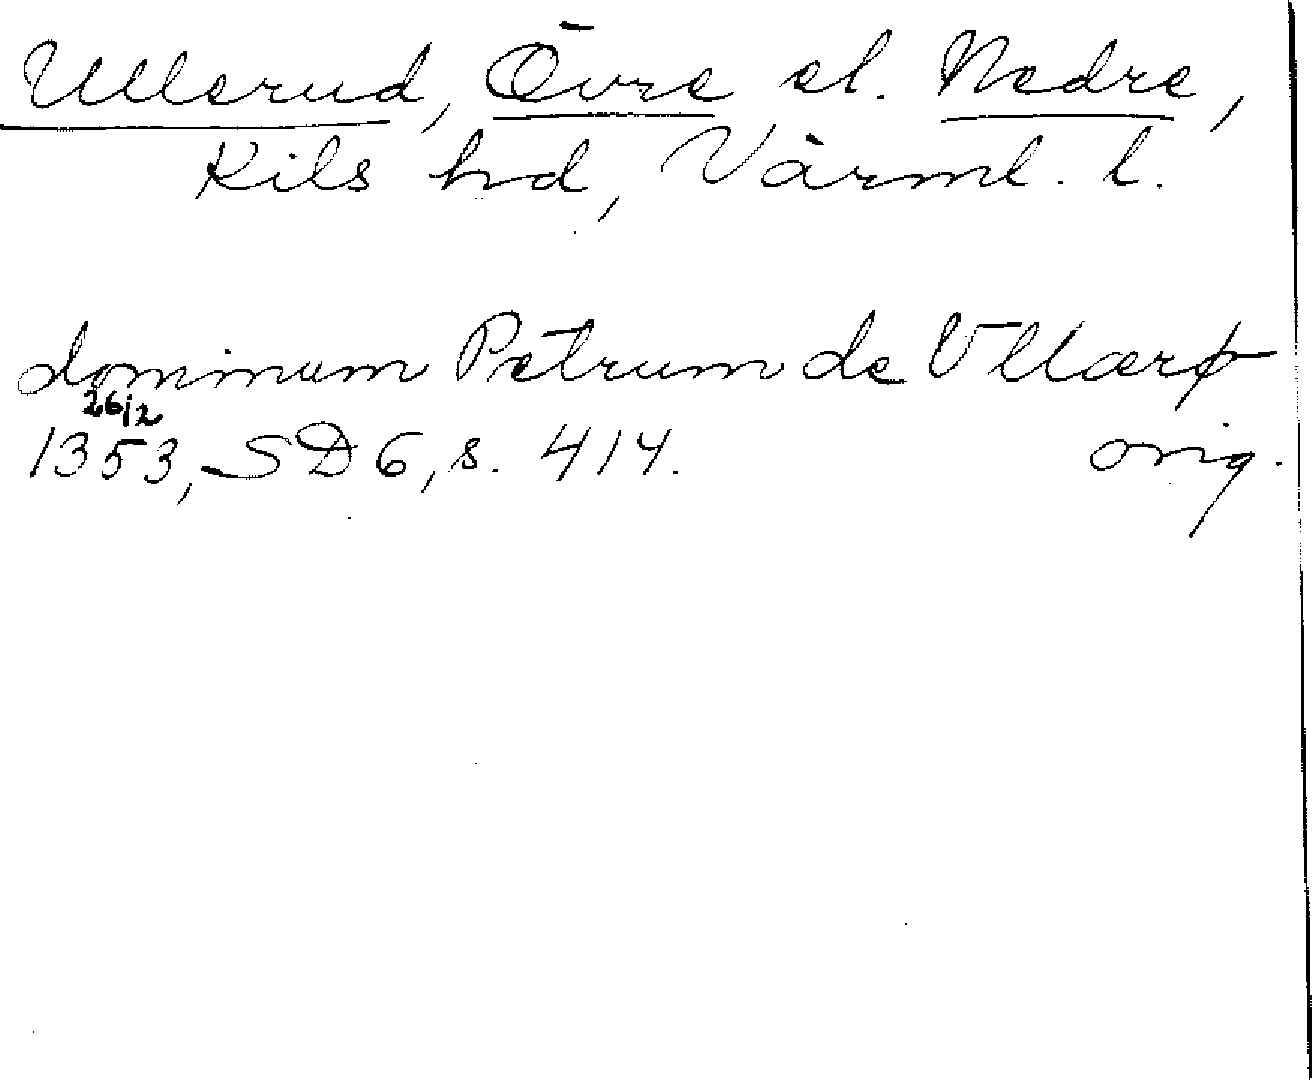 Ullerud, Övre el. Nedre,
Kils hd, Värml. l.
dominum Petrum de Ullærþ
26/2
1353, SD 6, s. 414. orig.